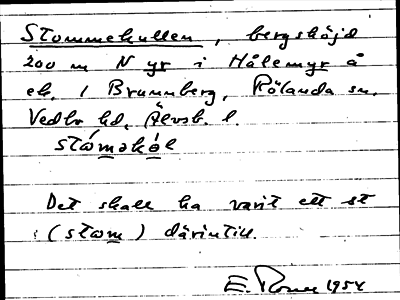 Stommekullen, bergshöjd
200 m N yr i Hålemyr å
ek. 1 Brunnberg, Rölanda sn.
Vedbo hd, Älvsb. l.
ståməkəl
Det skall ha varit ett st
(stom) därintill.
E. 1954